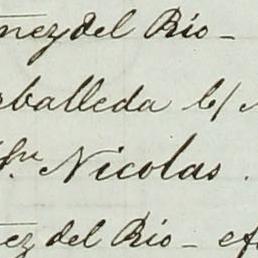 nez del Rio -
rballeda b/
Sr. Nicolas.
ez del Rio - ef